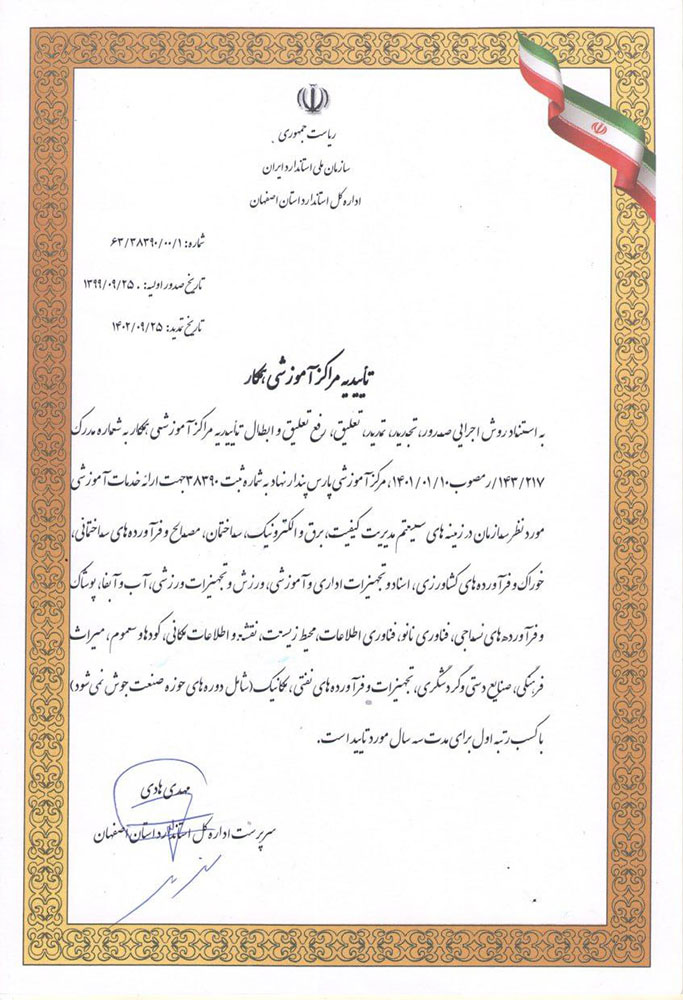 ریاست جمهوری
سازمان ملی استاندارد ایران
اداره کل استاندارد استان اصفهان
شماره: ۶۳/۳۸۳۹۰/۰۰/۱
تاریخ صدور اولیه: ۱۳۹۹/۰۹/۲۵
تاریخ تمدید: ۱۴۰۲/۰۹/۲۵
تأییدیه مراکز آموزشی همکار
به استناد روش اجرایی صدور، تجدید، تمدید، تعلیق، رفع تعلیق و ابطال تأییدیه مراکز آموزشی همکار به شماره مدرک
۱۴۳/۲۱۷/ر مصوب ۱۴۰۱/۰۱/۱۰، مرکز آموزشی پارس پندار نهاد به شماره ثبت ۳۸۳۹۰ جهت ارائه خدمات آموزشی
مورد نظر سازمان در زمینه های سیستم مدیریت کیفیت، برق و الکترونیک، ساختمان، مصالح و فرآورده های ساختمانی،
خوراک و فرآورده های کشاورزی، اسناد و تجهیزات اداری و آموزشی، ورزش و تجهیزات ورزشی، آب و آبفا، پوشاک
و فرآورده های نساجی، فناوری نانو، فناوری اطلاعات، محیط زیست، نقشه و اطلاعات مکانی، کودها و سموم، میراث
فرهنگی، صنایع دستی و گردشگری، تجهیزات و فرآورده های نفتی، مکانیک (شامل دوره های حوزه صنعت جوش نمی شود)
با کسب رتبه اول برای مدت سه سال مورد تایید است.
مهدی هادی
سرپرست اداره کل استاندارد استان اصفهان